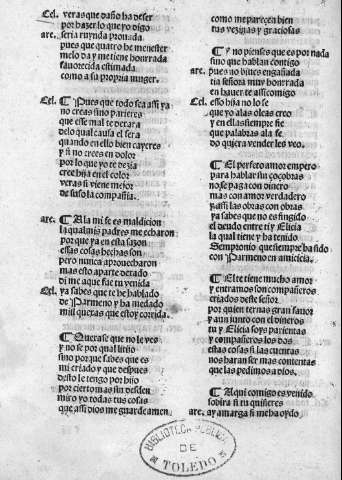 Cel. veras que daño ha de ser
por hazer lo que yo digo
are. seria ruynda prouada
pues que quatro he menester
me lo da y me tiene honrrada
fauorecida estimada
como a su propria muger.
Cel. ¶ Pues que todo sea assi ya
no creas sino parieres
que esse mal te dexara
de lo qual causa el sera
quando en ello bien cayeres
y si no crees en dolor
por lo que yo te dezia
cree hija en el color
veras si viene mejor
de suso la compañia.
are. ¶ A la mi se es maldicion
la qual mis padres me echaron
por que ya en esta sazon
essas cosas hechas son
pero nunca aprouecharon
mas esto aparte dexado
di me a que fue tu venida
Cel. ya sabes que te he hablado
de Parmeno y ha medado
mil quexas que estoy corrida.
¶ Quexase que no le ves
y no se por qual indio
sino por que sabes que es
mi criado y que despues
desto le tengo por hijo
por cierto mas sin desden
miro yo todas tus cosas
que assi dios me guarde amen.
como me parecen bien
tus vezinas y graciosas
¶ y no pienses que es por nada
sino que hablan contigo
are. pues no biues engañada
tia señora muy honrrada
en hauer te assi comigo
Cel. esso hija no lo se
que yo a las obras creo
y en ellas siempre fie
que palabras a la se
do quiera vender les veo.
¶ El perfeto amor empero
para hablar sin çoçobras
no se paga con dinero
mas con amor verdadero
y assi las obras con obras
ya sabes que no es fingido
el deudo entre ti y Elicia
la qual tiene y ha tenido
Sempronio que siempre ha sido
con Parmeno en amicicia.
¶ El te tiene mucho amor
y entramos son compañeros
criados deste señor
por quien ternas gran fauor
y aun junto con el dineros
tu y Elicia soys parientas
y compañeros los dos
estas cosas si las cuentas
nos haran ser mas contentas
que las pedimos a dios.
¶ Aqui comigo es venido
sobira si tu quisieres
are. ay amarga si me ha oydo
BIBLIOTECA PUBLICA
DE
TOLEDO